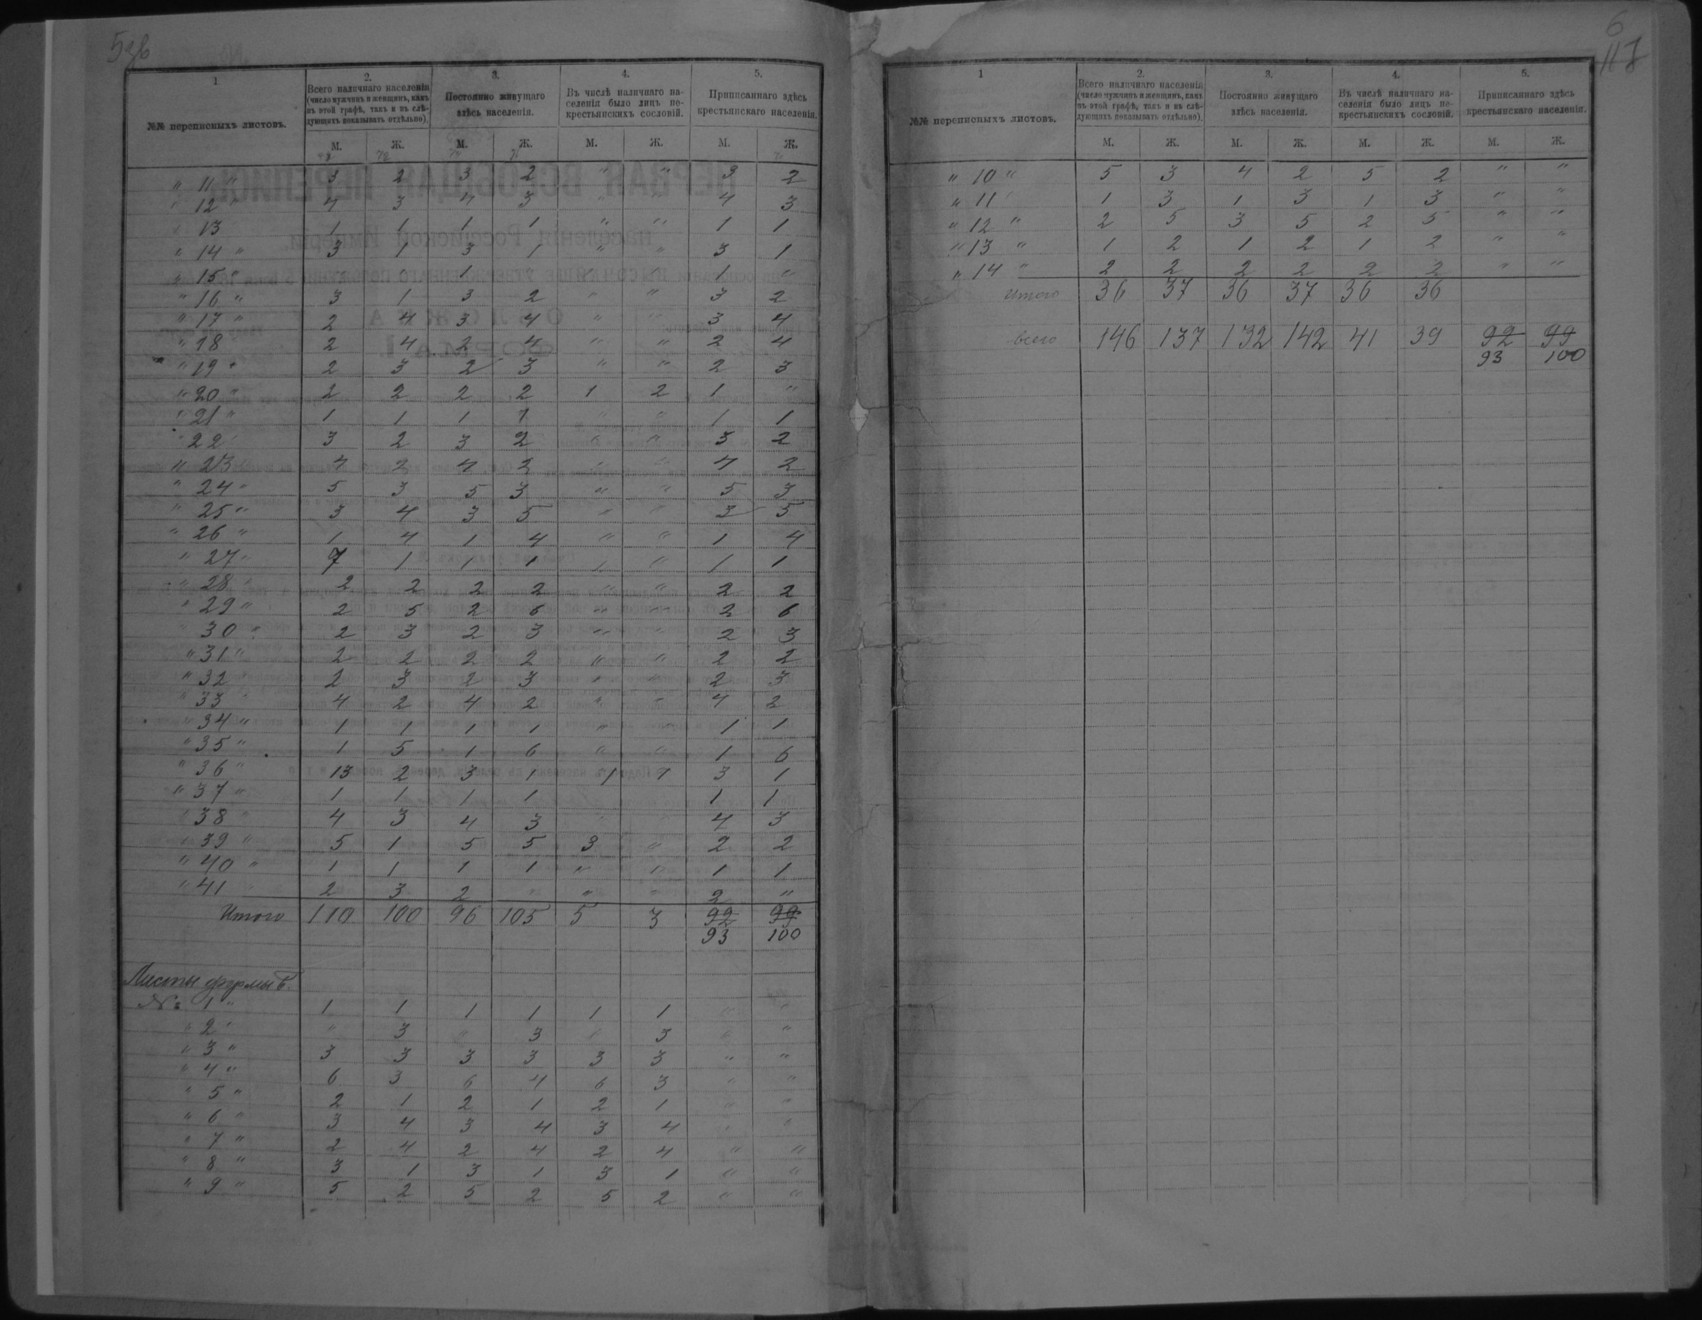 5 об
1.
2.
3.
4.
5.
№№ переписныхъ листовъ.
Всего наличнаго населенія (число мужчинъ и женщинъ, какъ въ этой графѣ, такъ и въ слѣдующихъ показывать отдѣльно).
Постоянно живущаго здѣсь населенія.
Въ числѣ наличнаго населенія было лицъ некрестьянскихъ сословій.
Приписаннаго здѣсь крестьянскаго населенія.
М. Ж. М. Ж. М. Ж. М. Ж.
" 11 " 3 2 3 2 " " 3 2
" 12 " 4 3 4 3 " " 4 3
" 13 1 1 1 1 " " 1 1
" 14 " 3 1 3 1 " " 3 1
" 15 " 1 " 1 " 1 "
" 16 " 3 1 3 2 " " 3 2
" 17 " 2 4 3 4 " " 3 4
" 18 " 2 4 2 4 " " 2 4
" 19 " 2 3 2 3 " " 2 3
" 20 " 2 2 2 2 1 2 1 "
" 21 " 1 1 1 1 " " 1 1
" 22 " 3 2 3 2 " " 3 2
" 23 " 4 2 4 2 " " 4 2
" 24 " 5 3 5 3 " " 5 3
" 25 " 3 4 3 5 " " 3 5
" 26 " 1 4 1 4 " " 1 4
" 27 " 7 1 1 1 " " 1 1
" 28 " 2 2 2 2 " " 2 2
" 29 " 2 5 2 6 " " 2 6
30 " 2 3 2 3 " " 2 3
" 31 " 2 2 2 2 " " 2 2
" 32 " 2 3 2 3 " " 2 3
" 33 " 4 2 4 2 " " 4 2
" 34 " 1 1 1 1 " " 1 1
" 35 " 1 5 1 6 " " 1 6
" 36 " 13 2 3 1 1 1 3 1
" 37 " 1 1 1 1 1 1
" 38 4 3 4 3 " 4 3
" 39 " 5 1 5 5 3 " 2 2
" 40 " 1 1 1 1 " " 1 1
" 41 2 3 2 " " " 2 "
Итого 110 100 96 105 5 3 92 99
93 100
Листы формы Б.
№ 1 " 1 1 1 1 1 1 " "
" 2 " " 3 " 3 " 3 " "
" 3 " 3 3 3 3 3 3 " "
" 4 " 6 3 6 4 6 3 " "
" 5 " 2 1 2 1 2 1 " "
" 6 " 3 4 3 4 3 4 " "
" 7 " 2 4 2 4 2 4 " "
" 8 " 3 1 3 1 3 1 " "
" 9 " 5 2 5 2 5 2 " "
6
117
1
2.
3.
4.
5.
№№ переписныхъ листовъ.
Всего наличнаго населенія (число мужчинъ и женщинъ, какъ въ этой графѣ, такъ и въ слѣдующихъ показывать отдѣльно).
Постоянно живущаго здѣсь населенія.
Въ числѣ наличнаго населенія было лицъ некрестьянскихъ сословій.
Приписаннаго здѣсь крестьянскаго населенія.
М. Ж. М. Ж. М. Ж. М. Ж.
" 10 " 5 3 4 2 5 2 " "
" 11 " 1 3 1 3 1 3 " "
" 12 " 2 5 3 5 2 5 " "
" 13 " 1 2 1 2 1 2 " "
" 14 " 2 2 2 2 2 2 " "
Итого 36 37 36 37 36 36
Всего 146 137 132 142 41 39 92 99
93 100